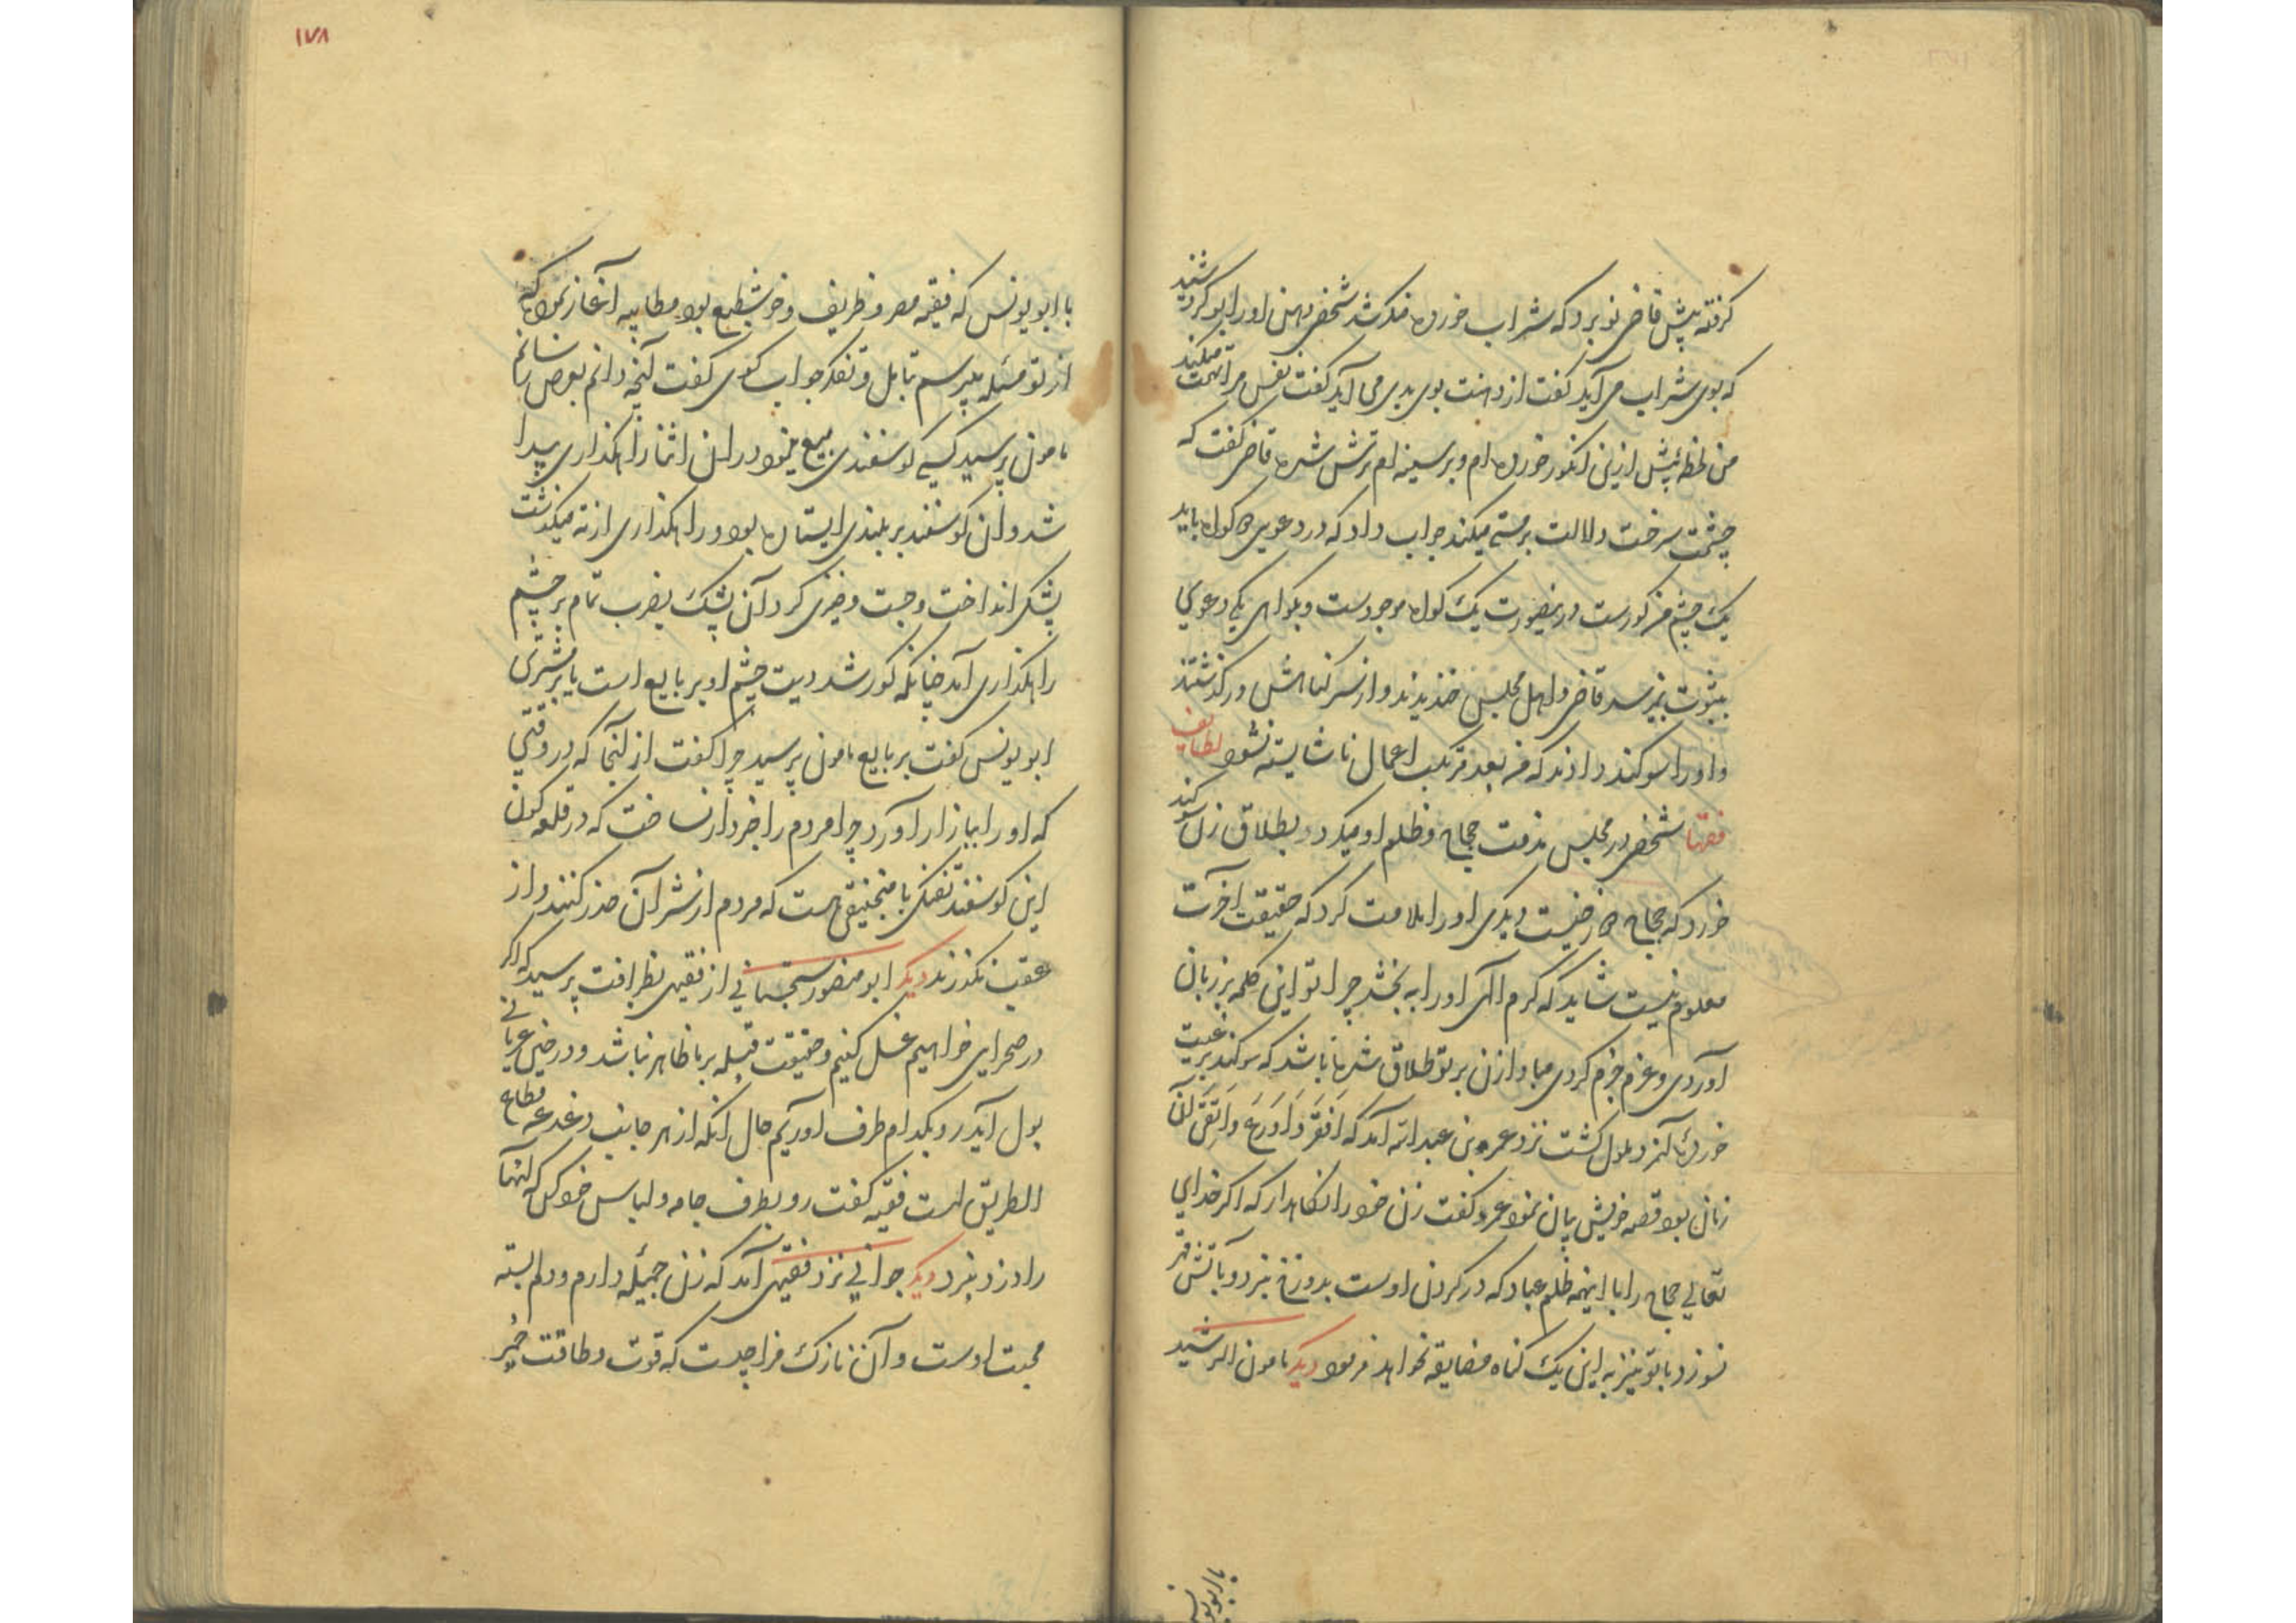 گرفته پیش قاضی نو برد که شراب خورده منکر شد شخصی دهن او را بو کرد شنید
که بوی شراب می آید گفت از دهنت بوی بدی می آید گفت نفس مرا تهمت میکند
من لحظهٔ پیش ازین انگور خورده ام و بر سینه ام ترش شده قاضی گفت که
چشمت سرخت دلالت بر مستی میکند جواب داد که در دعوی دو کواه باید
یک چشم من کورست درینصورت یک کواه موجودست و بکواهی یکی دعوی
بثبوت نمیرسد قاضی و اهل مجلس خندیدند و از سر کناهش درگذشتند
و او را سوکند دادند که من بعد مرتکب اعمال ناشایسته نشود لطایف
فقها شخصی در مجلس مذمت حجاج و ظلم او میکرد بطلاق زن سوکند
خورد که حجاج دوزخیست دیگری او را ملامت کرد که حقیقت آخرت
معلوم نیست شاید که کرم الهی او را به بخشد چرا تو این کلمه بر زبان
آوردی و عزم جزم کردی مبادا زن بر تو طلاق شده باشد که سوکند بر غیبت
خوردهٔ آنمرد ملول کشت نزد عمرو بن عبد الله آمد که افقه و اورع و اتقی آن
زمان بود قصه خویش بیان نمود عمرو گفت زن خود را نکاهدار که اگر خدای
تعالی حجاج را با اینهمه ظلم عباد که در کردن اوست بدوزخ نبرد و بآتش قهر
نسوزد با تو نیز به این یک کناه مضایقه نخواهد فرمود دیگر مامون الرشید
با ابو یونس
۱۷۸
با ابو یونس که فقیه مصر و ظریف و خوشطبع بود مطایبه آغاز نمود که
از تو مسئله بپرسم تامل و تفکر جواب کوی گفت آنچه دانم بعرض رسانم
مامون پرسید کسی کوسفندی بیع مینمود در ان اثنا راهکذاری پیدا
شد و ان کوسفند بر بلندی ایستاده بود و راهکذاری از ته میکذشت
پشکی انداخت و جست و خیزی کرد آن پشک بضرب تمام بر چشم
راهکذاری آمد چنانکه کور شد دیت چشم او بر بایع است یا بر مشتری
ابو یونس گفت بر بایع مامون پرسید چرا گفت از آنجا که در وقتی
که او را ببازار آورد چرا مردم را خبردار نساخت که در قلعه کون
این کوسفند تفنکی با منجنیقی هست که مردم از شر آن حذر کنند و از
عقبش نکذرند دیگر ابو منصور سجستانی از فقیهی بظرافت پرسید که اگر
در صحرای خواهیم غسل کنیم و حقیقت قبله بر ما ظاهر نباشد و در حین عریانی
بول آید رو بکدام طرف آوریم حال آنکه از هر جانب دغدغه قطاع
الطریق است فقیه گفت رو بطرف جامه و لباس خود کن که آنها
را دزد نبرد دیگر جوانی نزد فقیهی آمد که زن جمیله دارم و دلم بسته
محبت اوست و آن نازک مزاجیست که قوت و طاقت خمیر